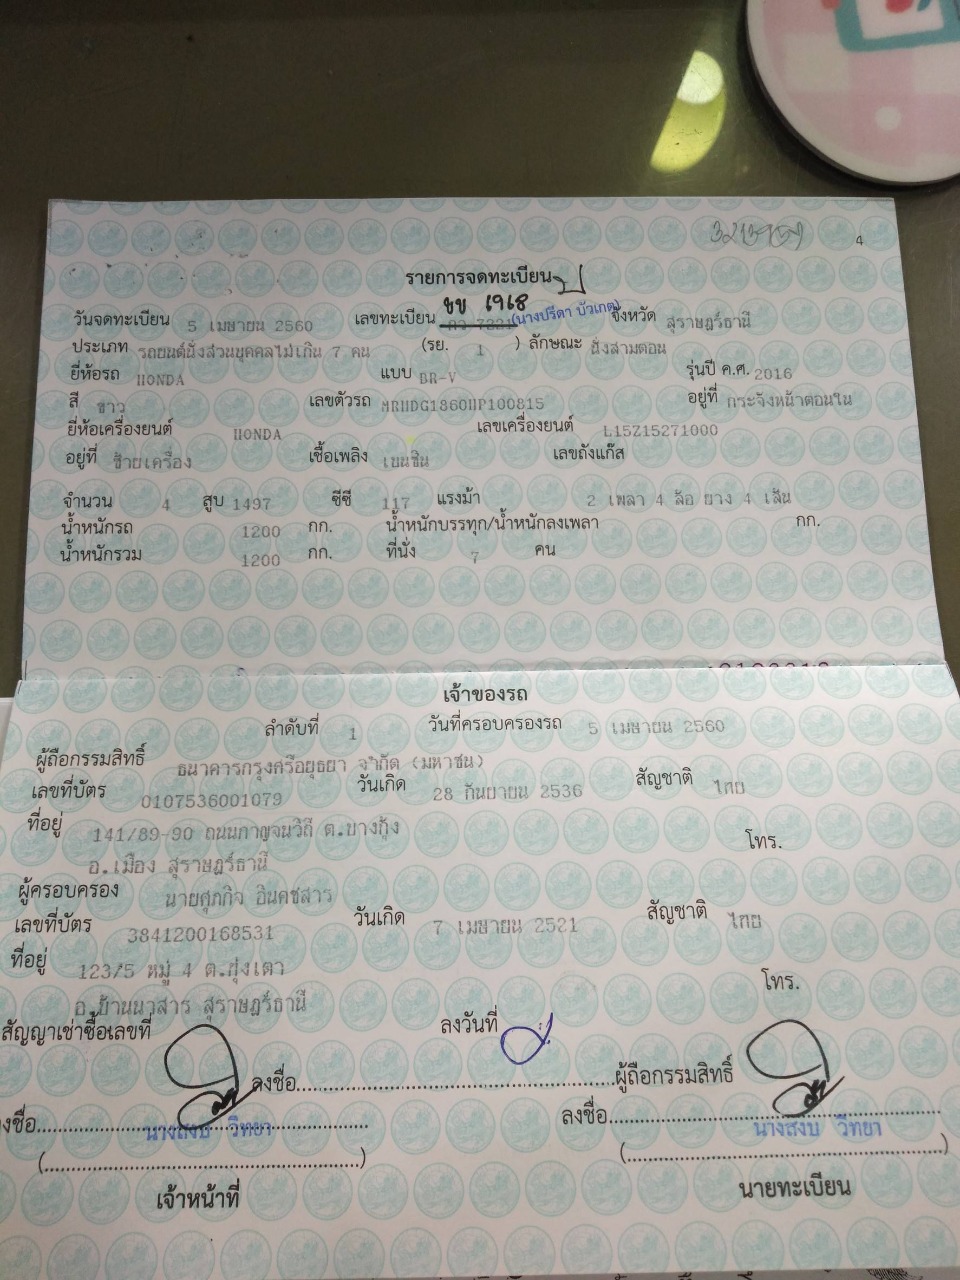 4
รายการจดทะเบียน
ขข 1968
วันจดทะเบียน 5 เมษายน 2560 เลขทะเบียน กว 7221 (นางปรีดา บัวเกตุ) จังหวัด สุราษฎร์ธานี
ประเภท รถยนต์นั่งส่วนบุคคลไม่เกิน 7 คน (รย. 1 ) ลักษณะ นั่งสามตอน
ยี่ห้อรถ HONDA แบบ BR-V รุ่นปี ค.ศ. 2016
สี ขาว เลขตัวรถ MRHDG1860HP100815 อยู่ที่ กระจังหน้าตอนใน
ยี่ห้อเครื่องยนต์ HONDA เลขเครื่องยนต์ L15Z15271000
อยู่ที่ ซ้ายเครื่อง เชื้อเพลิง เบนซิน เลขถังแก๊ส
จำนวน 4 สูบ 1497 ซีซี 117 แรงม้า 2 เพลา 4 ล้อ ยาง 4 เส้น
น้ำหนักรถ 1200 กก. น้ำหนักบรรทุก/น้ำหนักลงเพลา กก.
น้ำหนักรวม 1200 กก. ที่นั่ง 7 คน
เจ้าของรถ
ลำดับที่ 1 วันที่ครอบครองรถ 5 เมษายน 2560
ผู้ถือกรรมสิทธิ์ ธนาคารกรุงศรีอยุธยา จำกัด (มหาชน)
เลขที่บัตร 0107536001079 วันเกิด 28 กันยายน 2536 สัญชาติ ไทย
ที่อยู่ 141/89-90 ถนนกาญจนวิถี ต.บางกุ้ง โทร.
อ.เมือง สุราษฎร์ธานี
ผู้ครอบครอง นายศุภกิจ อินคชสาร
เลขที่บัตร 3841200168531 วันเกิด 7 เมษายน 2521 สัญชาติ ไทย
ที่อยู่ 123/5 หมู่ 4 ต.ทุ่งเตา โทร.
อ.บ้านนาสาร สุราษฎร์ธานี
สัญญาเช่าซื้อเลขที่ ลงวันที่
ลงชื่อ ผู้ถือกรรมสิทธิ์
ลงชื่อ ลงชื่อ
นางสงบ วิทยา นางสงบ วิทยา
( ) ( )
เจ้าหน้าที่ นายทะเบียน